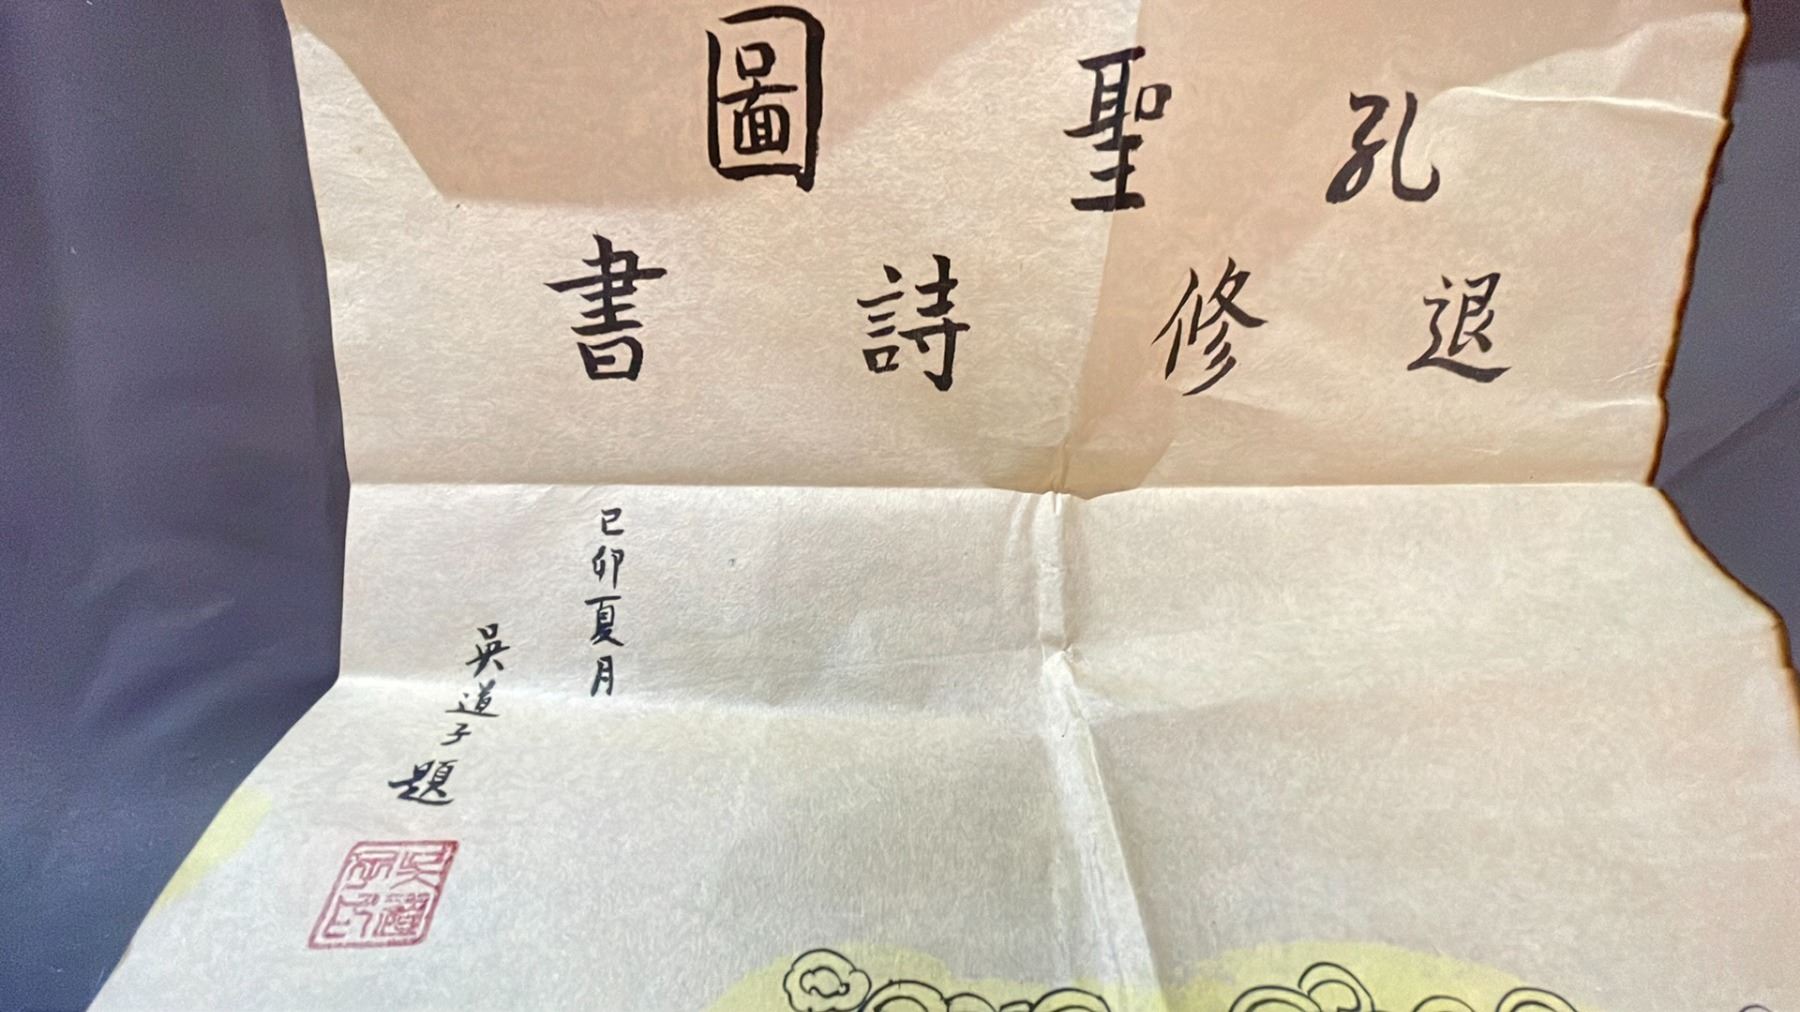 孔聖圖
退修詩書
已卯夏月
吳道子題